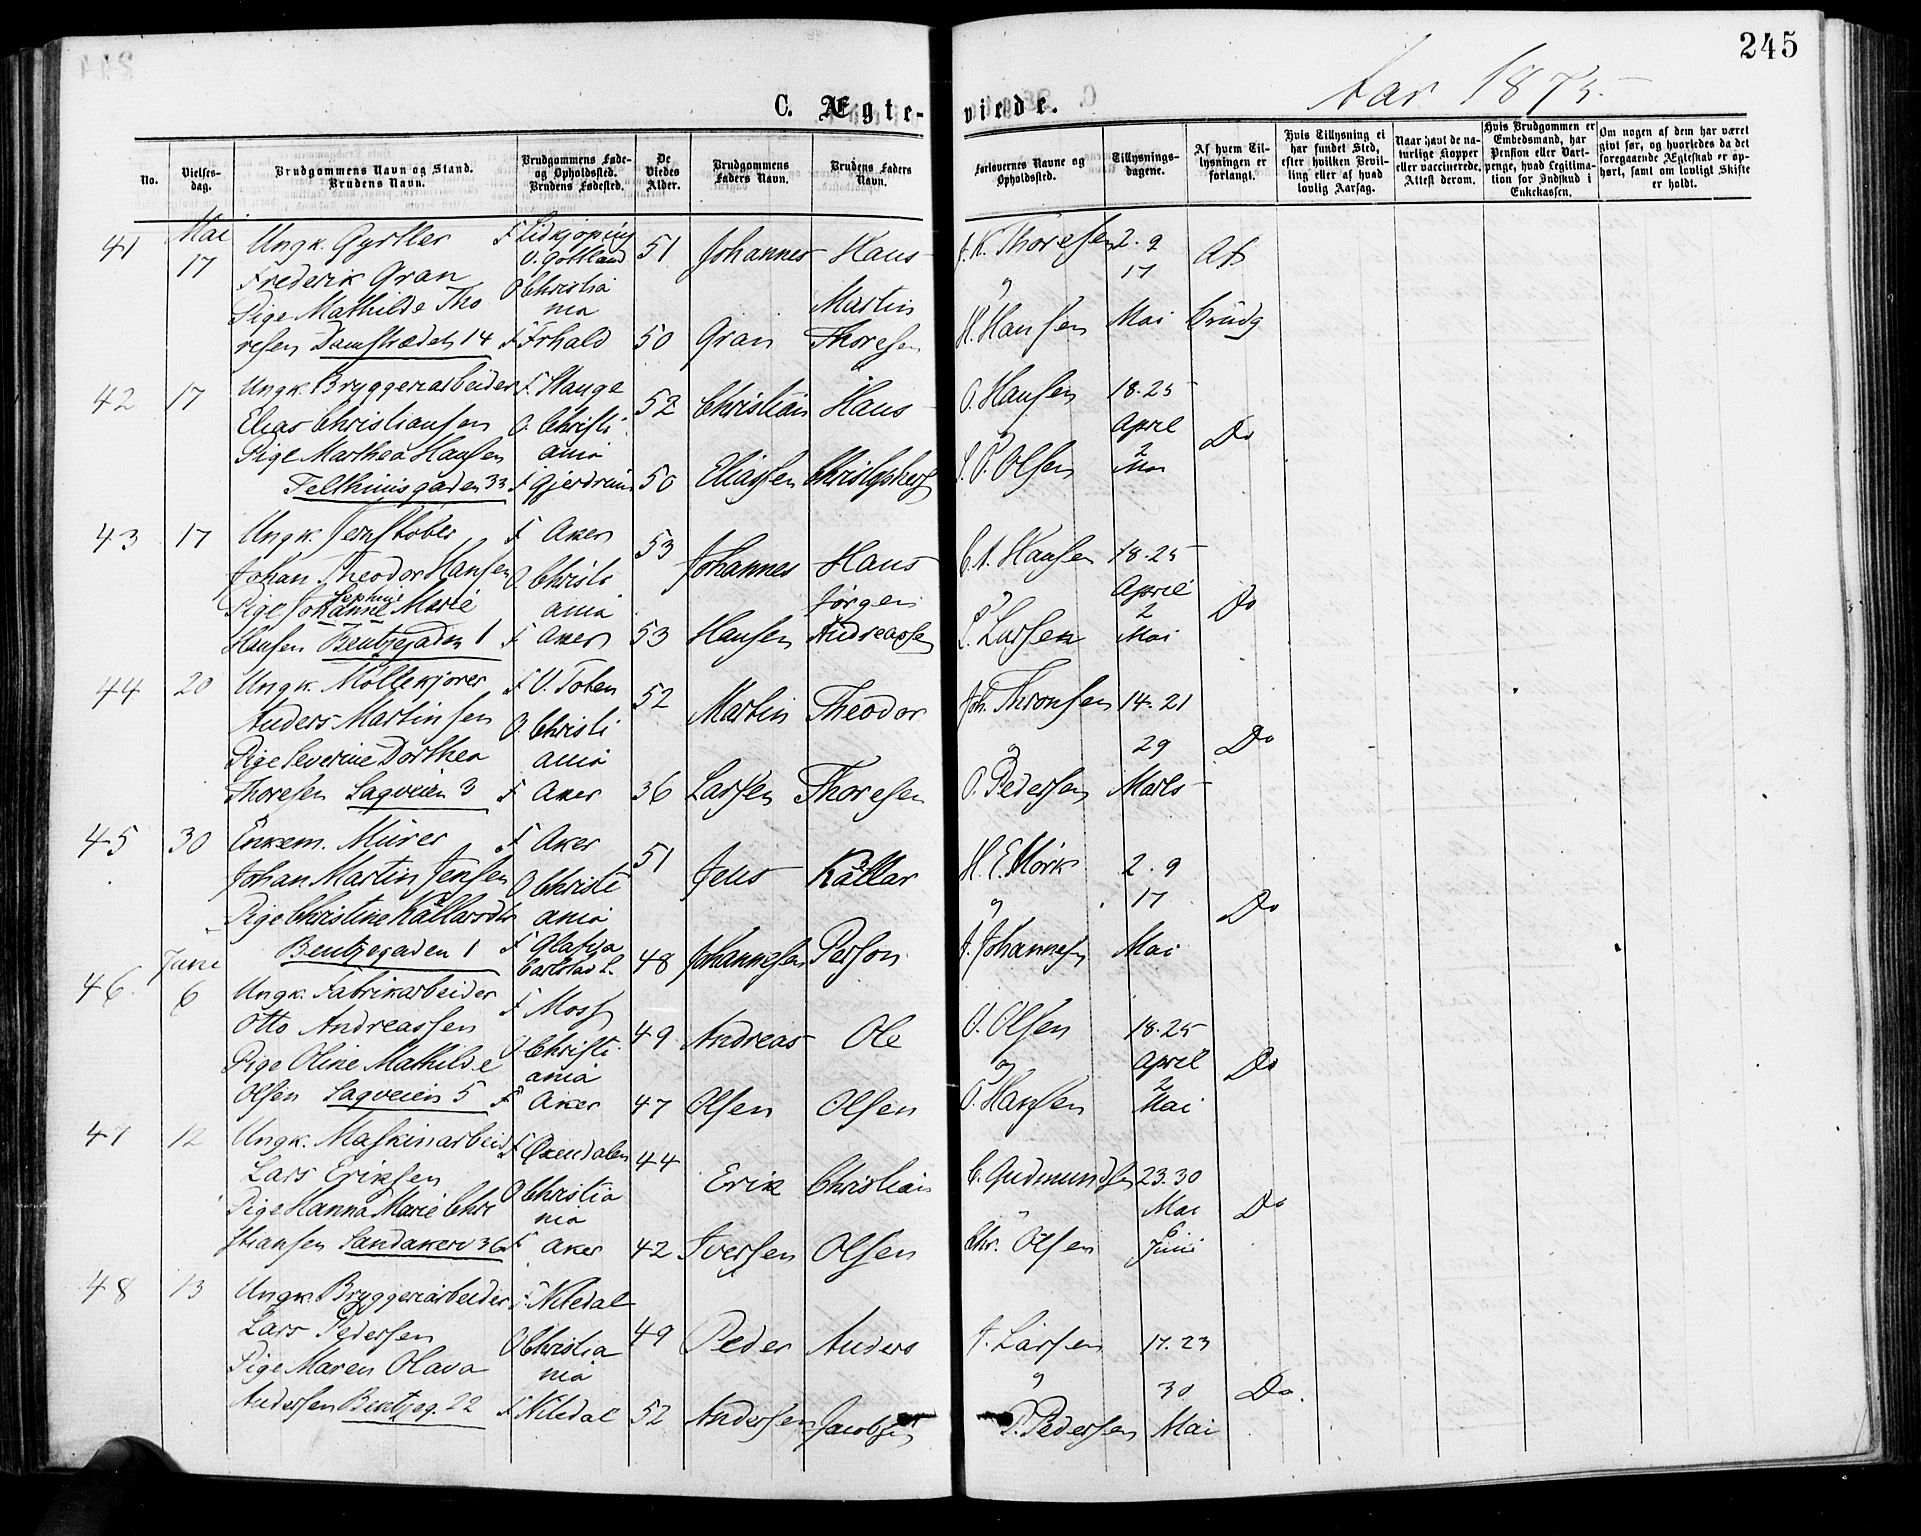 245
C. Ægte-
viede.
Aar 1875.
No.
Vielses-
dag.
Brudgommens Navn og Stand.
Brudens Navn.
Brudgommens Føde-
og Opholdssted.
Brudens Fødested.
De
Viedes
Alder.
Brudgommens
Faders Navn.
Brudens Faders
Navn.
Forlovernes Navne og
Opholdssted.
Tillysnings-
dagene.
Af hvem Til-
lysningen er
forlangt.
Hvis Tillysning ei
har fundet Sted,
efter hvilken Bevil-
ling eller af hvad
lovlig Aarsag.
Naar havt de na-
turlige Kopper
eller vaccinerede.
Attest derom.
Hvis Brudgommen er
Embedsmand, har
Pension eller Vart-
penge, hvad Legitima-
tion for Indskud i
Enkekassen.
Om nogen af dem har været
gift før, og hvorledes da det
foregaaende Ægteskab er op-
hørt, samt om lovligt Skifte
er holdt.
41 Mai 17 Ungk. Gyrtler F Lidkjøping 51 Johannes Hans J. K. Thoresen 2. 9
Frederik Gran V. Gotland og 17 Af
Pige Mathilde Tho O Christia Martin
resen Damstrædet 14 nia F Frhald 50 Gran Thoresen H. Hansen Mai brudg
42 17 Ungk. Bryggeriarbeider F. Stange 52 Christian Hans O. Hansen 18. 25
Elias Christiansen O. Christi April
Pige Marthea Hansen ania og 2 Do
Telthuusgaden 33 F Gjerdrum 50 Eliassen Christophers P. Olsen Mai
43 17 Ungk. Jernstøber F Aker 53 Johannes Hans C. A. Hansen 18. 25
Johan Theodor Hansen O Christi April
Sephine
Pige Johanne Marie ania Jørgen 2 Do
Hansen Bentzegaden 1 F Aker 53 Hansen Andreassen L. Larsen Mai
44 20 Ungk. Møllekjører F V. Toten 52 Martin Theodor Joh. Thronsen 14. 21
Anders Martinsen O. Christi
Pige Severine Dorthea ania og 29 Do
Thoresen Sagveien 3 F Aker 36 Larsen Thoresen O. Pedersen Marts
45 30 Enkem. Murer F Aker 51 Jens Kållar H. E. Mørk 2. 9
Johan Martin Jensen O Christi og 17 Do
Pige Christine Kållarsdtr ania
Bentzegaden 1 F Glafva 48 Johannesen Person J. Johannesen Mai
Carlstad L.
46 Juni 6 Ungk. Fabrikarbeider F Moss 49 Andreas Ole O. Olsen 18. 25
Otto Andreassen O Christi April
Pige Oline Mathilde ania og 2 Do
Olsen Sagveien 5 F Aker 47 Olsen Olsen O. Hansen Mai
47 12 Ungk. Maskinarbeid F Øxendalen 44 Erik Christian C. Gudmundsen 23. 30
Lars Eriksen O Christia Mai Do
Pige Hanna Marie Chri nia 6
stiansen Sandakerv 36 F Aker 42 Iversen Olsen Chr. Olsen Juni
48 13 Ungk. Bryggeriarbeider F Nitedal 49 Peder Anders J. Larsen 17. 23
Lars Pedersen O Christia
Pige Maren Olava nia og 30 Do.
Andersen Bentzeg. 22 F Nitedal 52 Andersen Jacobsen P. Pedersen Mai